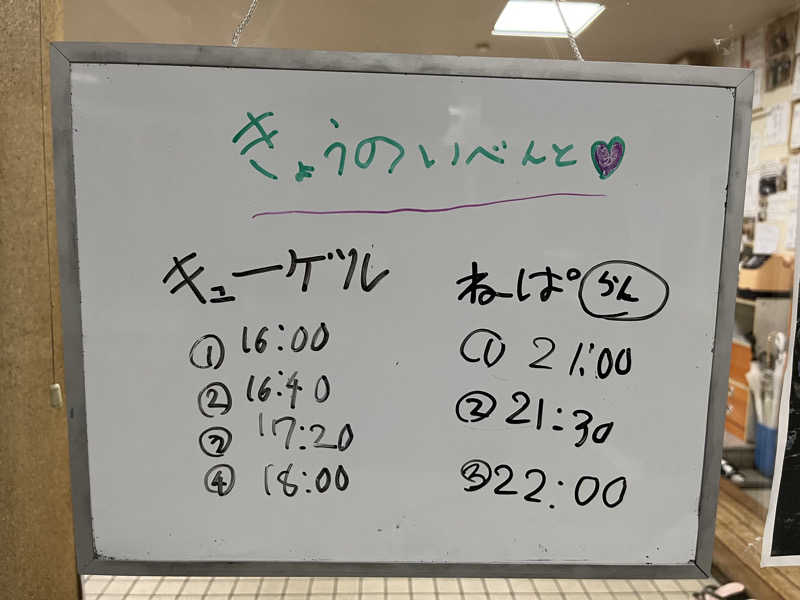 きょうのいべんと♥
キューゲル
① 16:00
② 16:40
③ 17:20
④ 18:00
ねーぱ らん
① 21:00
② 21:30
③ 22:00